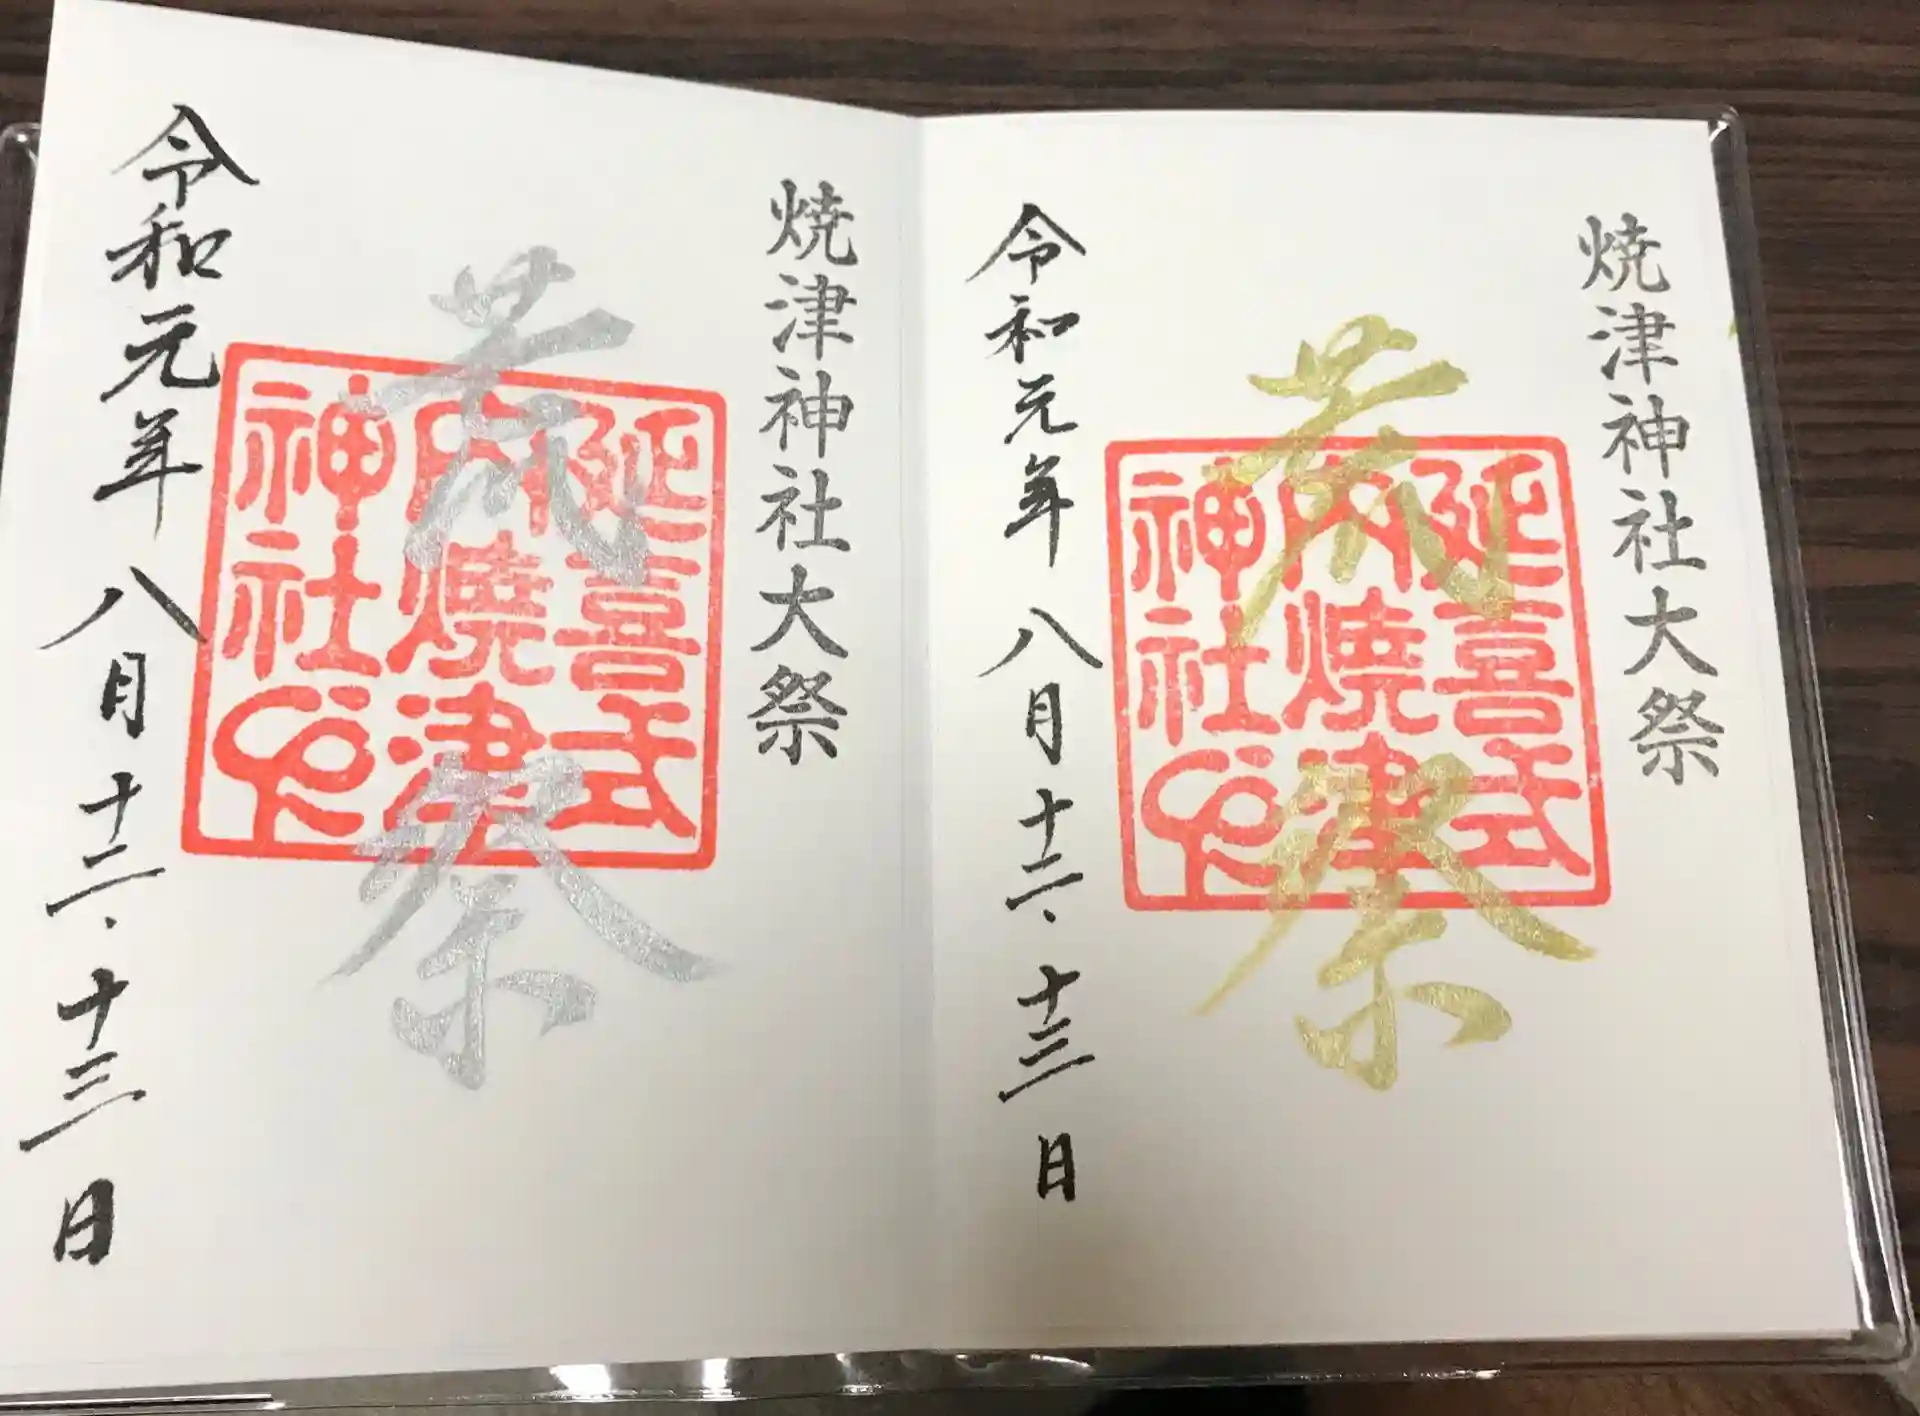 焼津神社大祭
荒祭
延喜式
内焼津
神社印
令和元年 八月十二、十三日
焼津神社大祭
荒祭
延喜式
内焼津
神社印
令和元年 八月十二、十三日